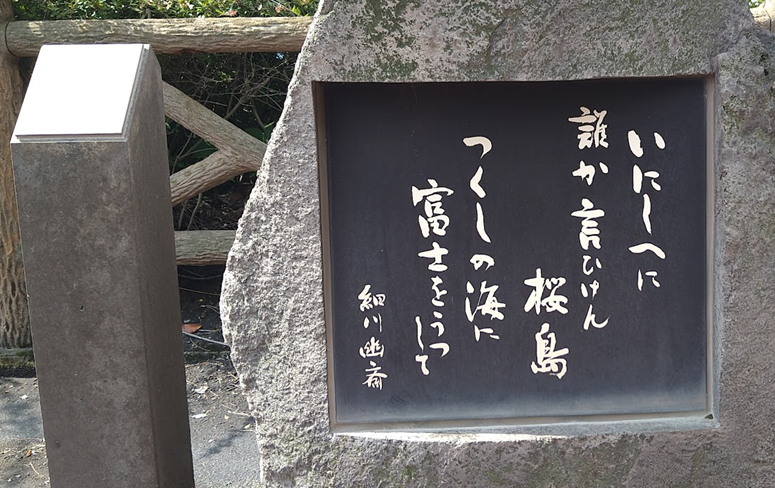 いにしへに
誰か言ひけん
桜島
つくしの海に
富士をうつして
細川幽斎